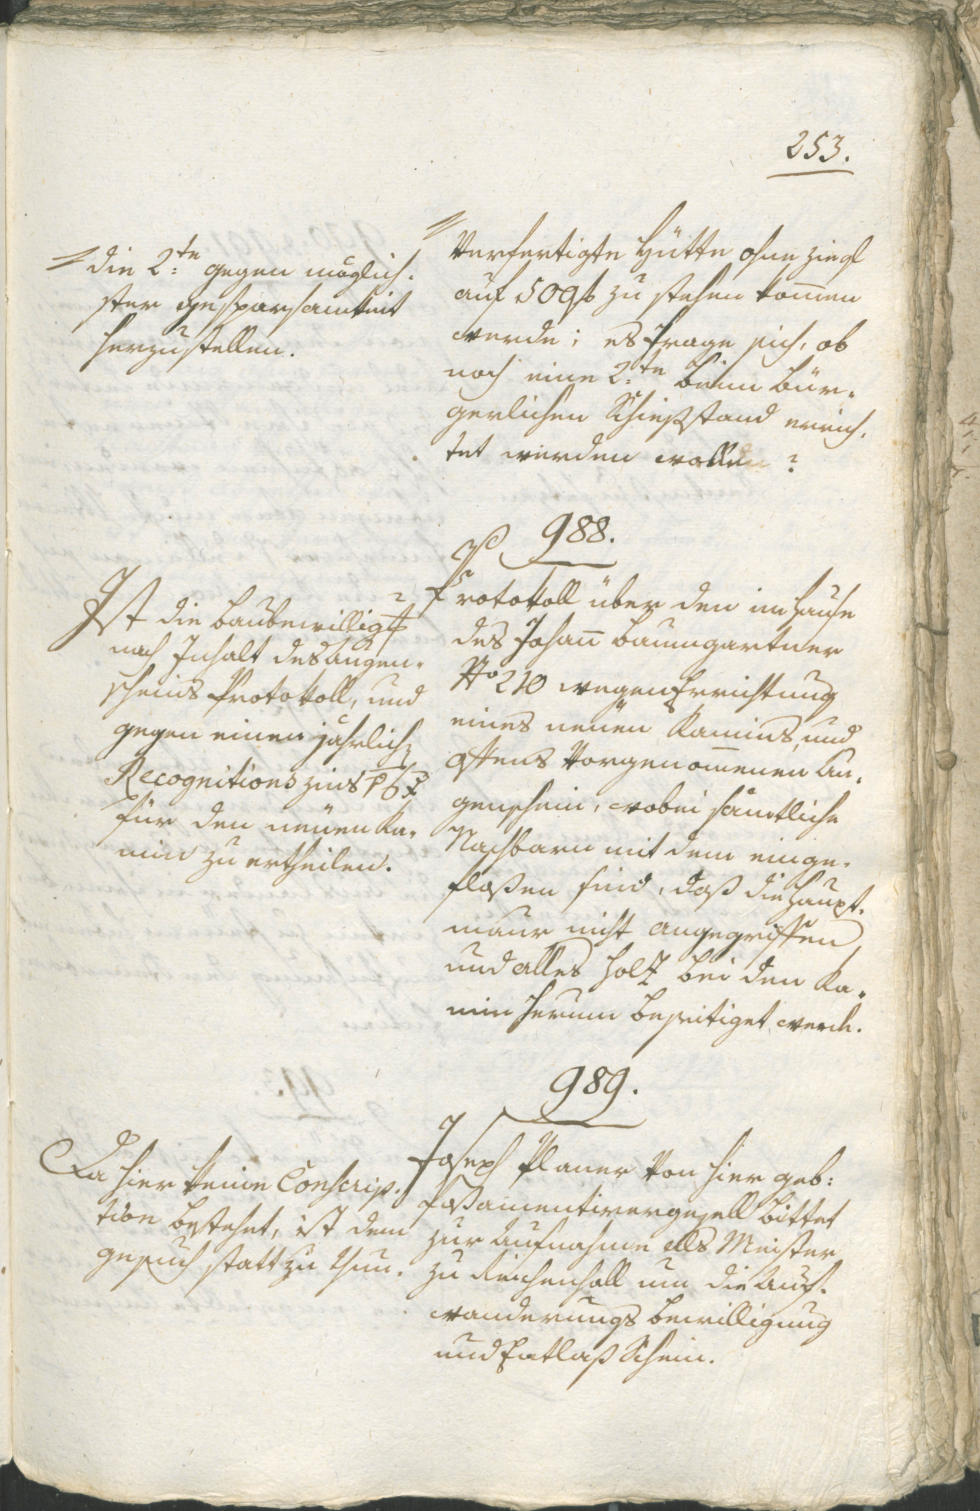 253.
die 2.te gegen möglich-
ster Gesparsamkeit
herzustellen.
Verfertigte Hütte ohne Ziegl
auf 50 f zu stehen kom̅en
werde; es frage sich, ob
noch eine 2.te beim bür-
gerlichen Schießstand errich-
tet werden wolle?
988.
Ist die Baubewilligg
nach Inhalt des Augen-
scheins Protokoll, und
gegen einen jährlich
Recognitionszins p 6 x
für den neuen Ka-
min zu ertheilen.
Protokoll über den im Hause
des Johan̅ Baumgartner
No 210 wegen Errichtung
eines neuen Kamins, und
Ofens Vorgenom̅enen Au-
genschein, wobei sämtliche
Nachbarn mit dem einge-
floßen sind, daß die Haupt-
maur nicht angegriffen
und alles Holz bei den Ka-
min herum beseitiget werde.
989.
Da hier keine Conscrip-
tion bestehet, ist dem
Gesuch statt zu thun.
Joseph Planer von hier geb:
Poßamentirergesell bittet
zur Aufnahme als Meister
zu Reichenhall um die Aus-
wanderungs Bewilligung
und Entlaß Schein.